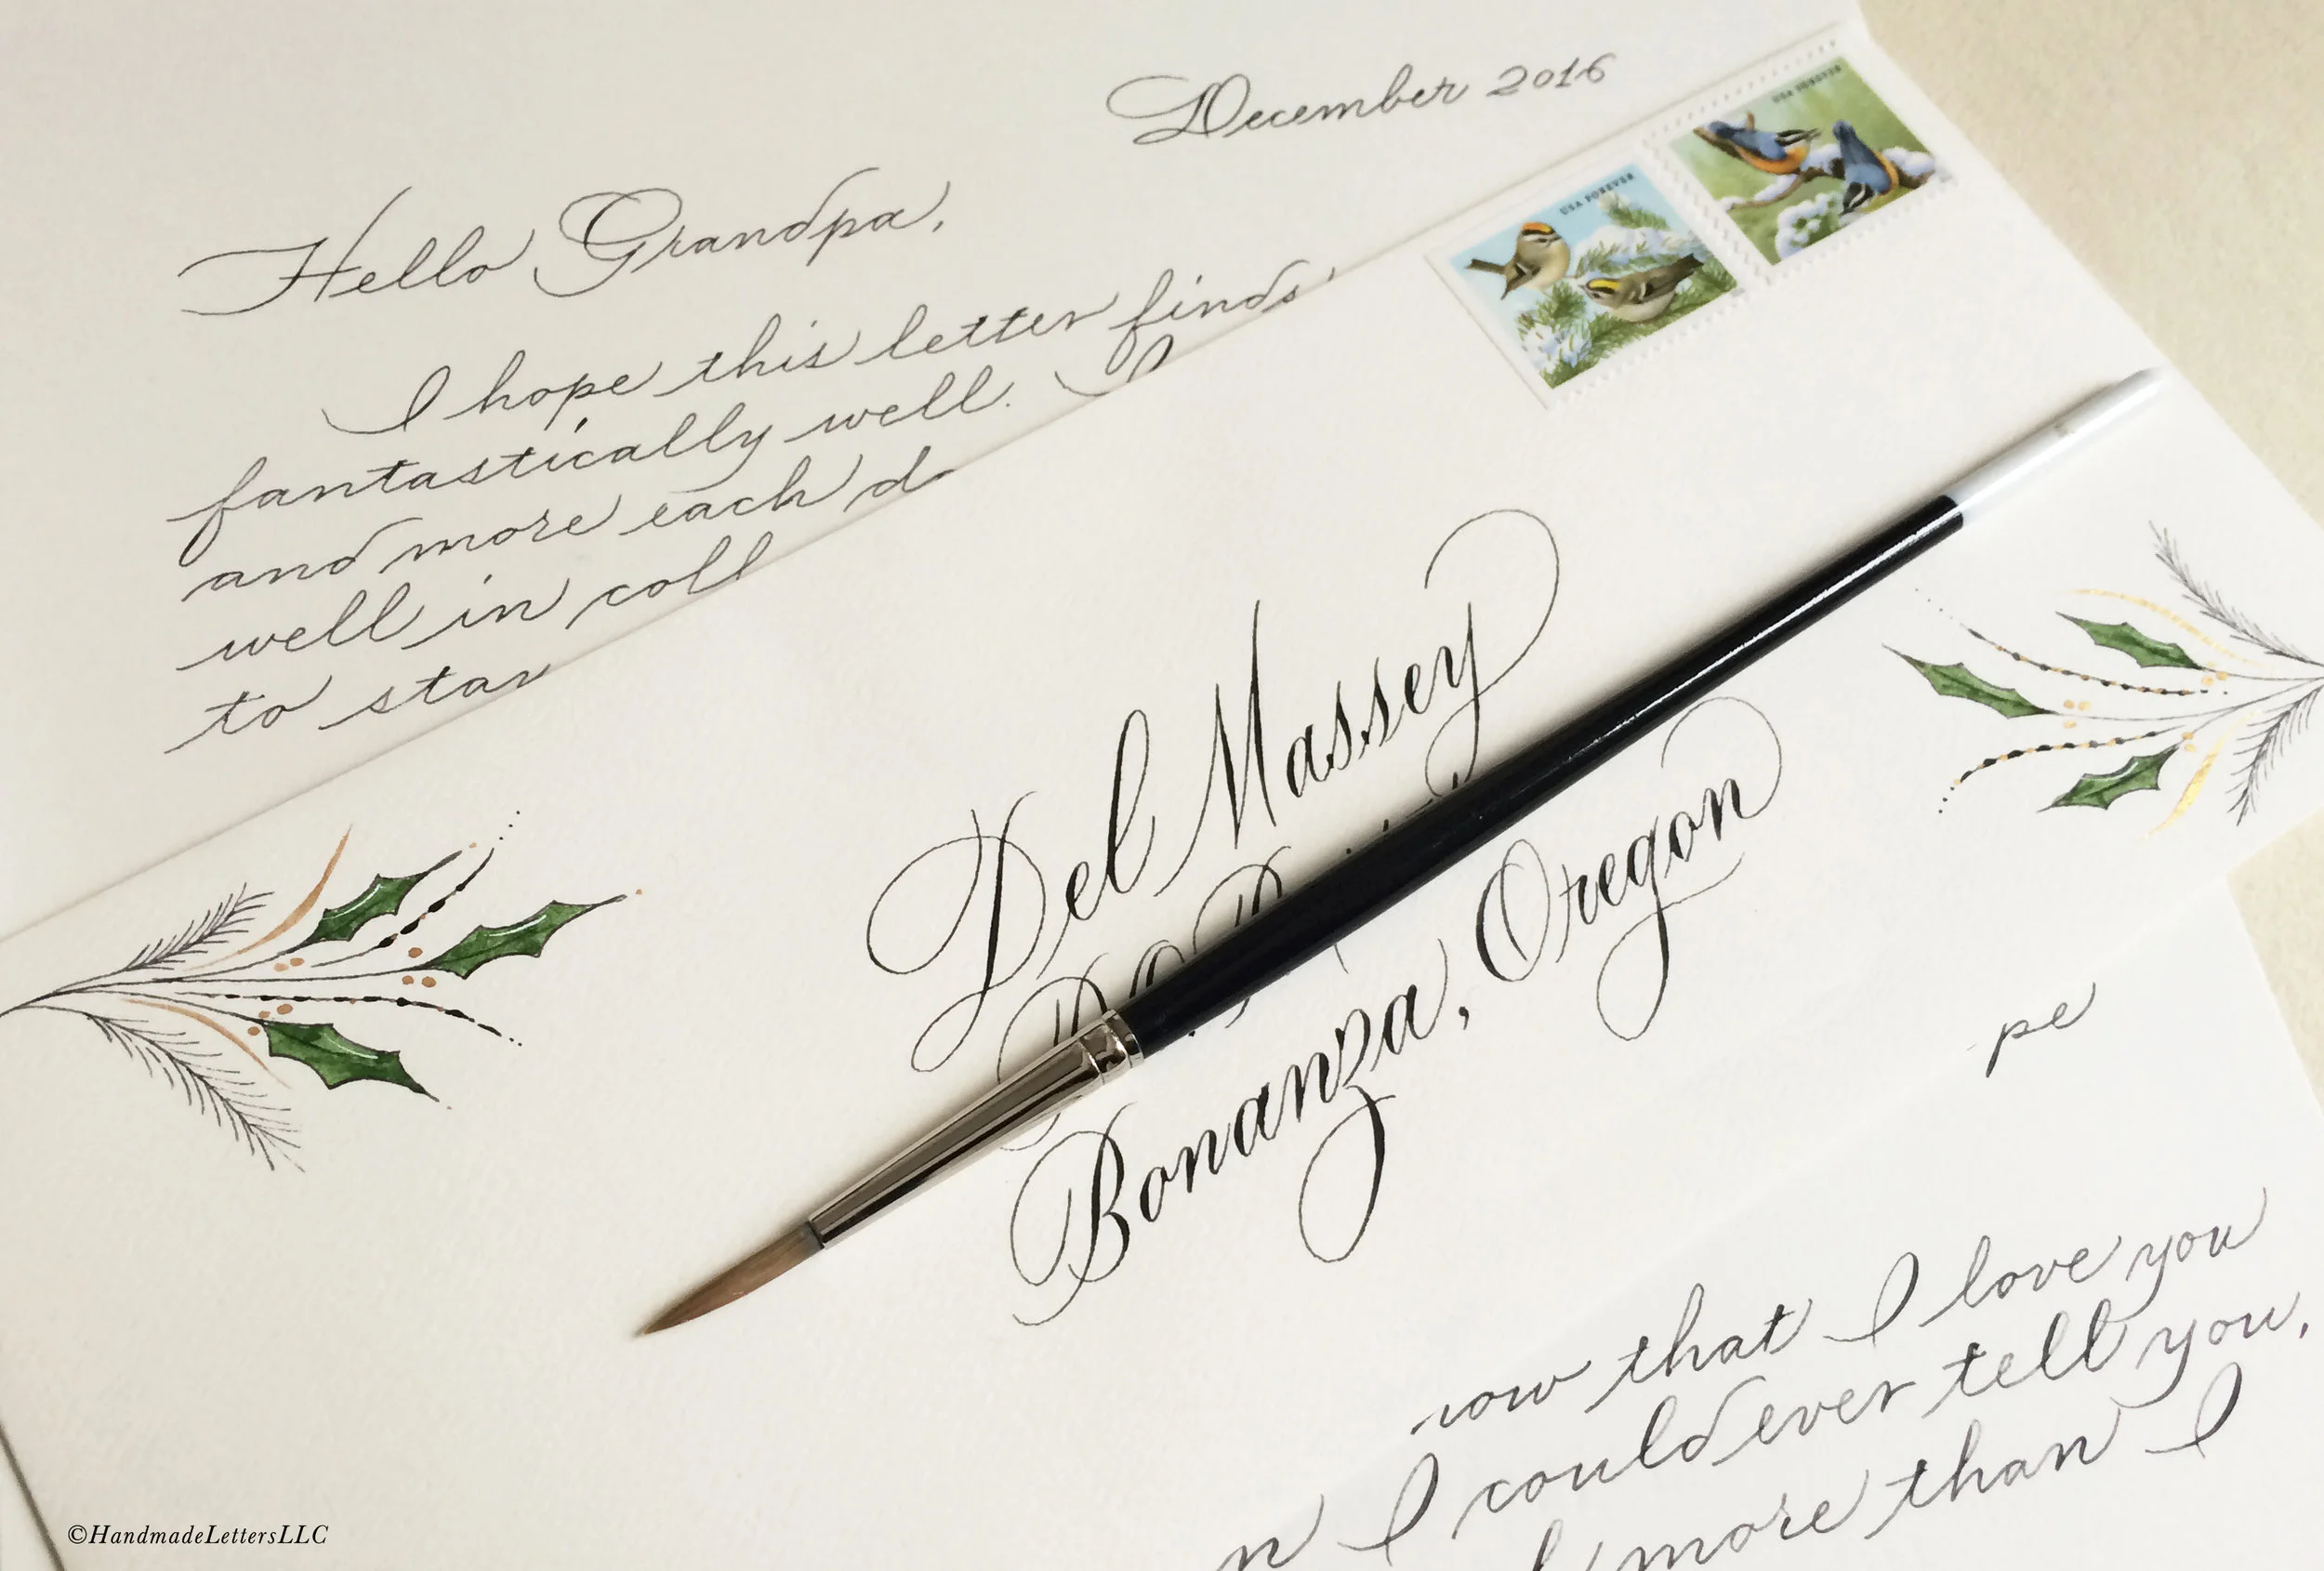 December 2016
Hello Grandpa,
I hope this letter finds
fantastically well. I
and more each
well in
to
USA FOREVER
USA FOREVER
Del Massey
Bonanza, Oregon
that I love you
I could ever tell you,
more than I
©HandmadeLettersLLC